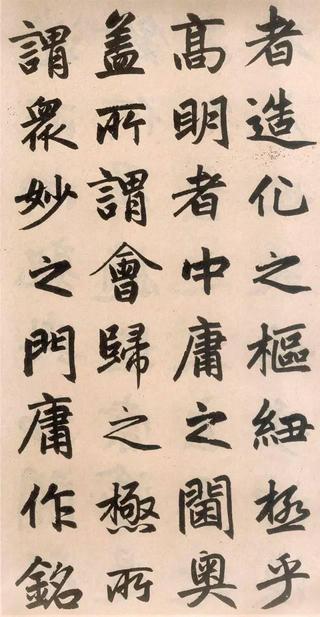 者造化之樞紐極乎
高明者中庸之閫奧
盖所謂會歸之極所
謂衆妙之門庸作銘